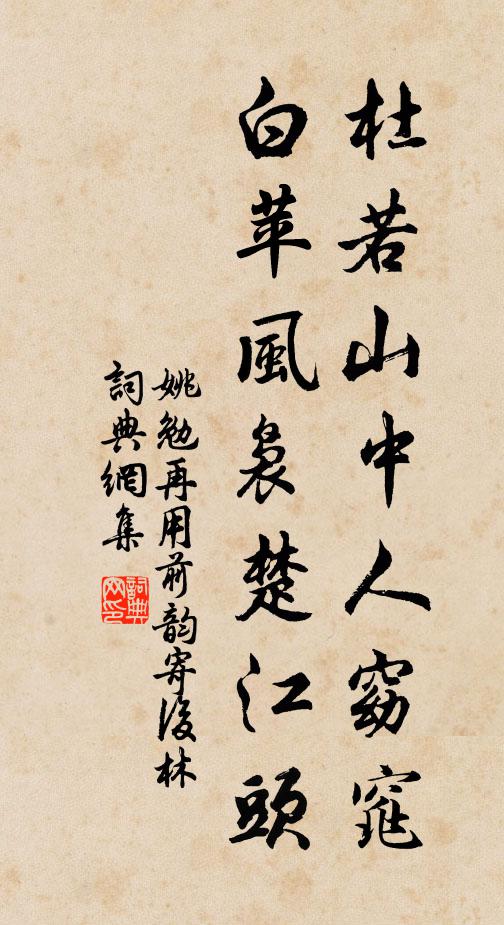 杜若山中人窈窕
白苹風裊楚江頭
姚勉再用前韵寄後林
詞典網集
詞典網印